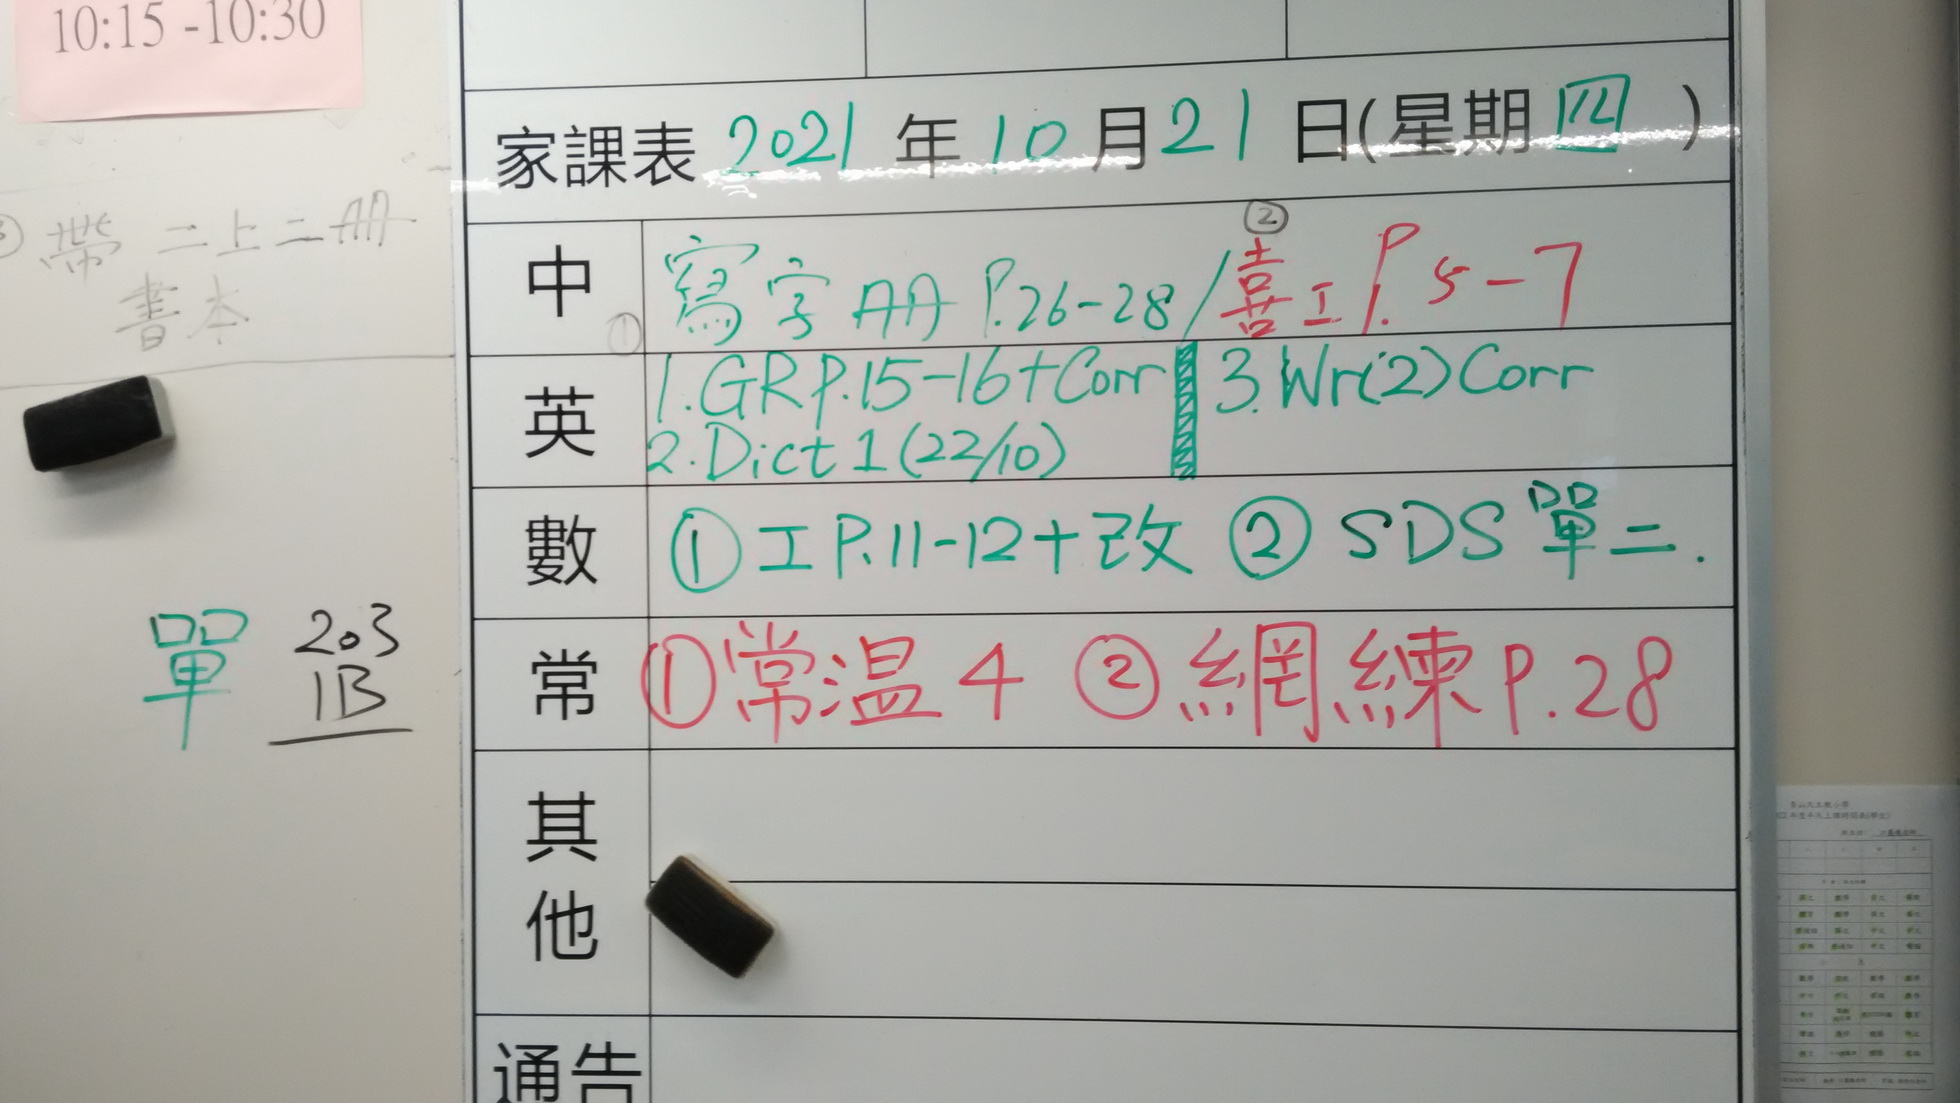 10:15 -10:30
家課表 2021 年 10 月 21 日(星期 四 )
帶 二上二冊
書本
中 ① 寫字冊 P.26-28 / ② 喜工 P. 5-7
英 1.GR P.15-16+Corr 3.Wr(2)Corr
2.Dict 1 (22/10)
數 ① 工 P.11-12+改 ② SDS 單二.
單 203
1B
常 ①常温 4 ②網練 P.28
其
他
通告